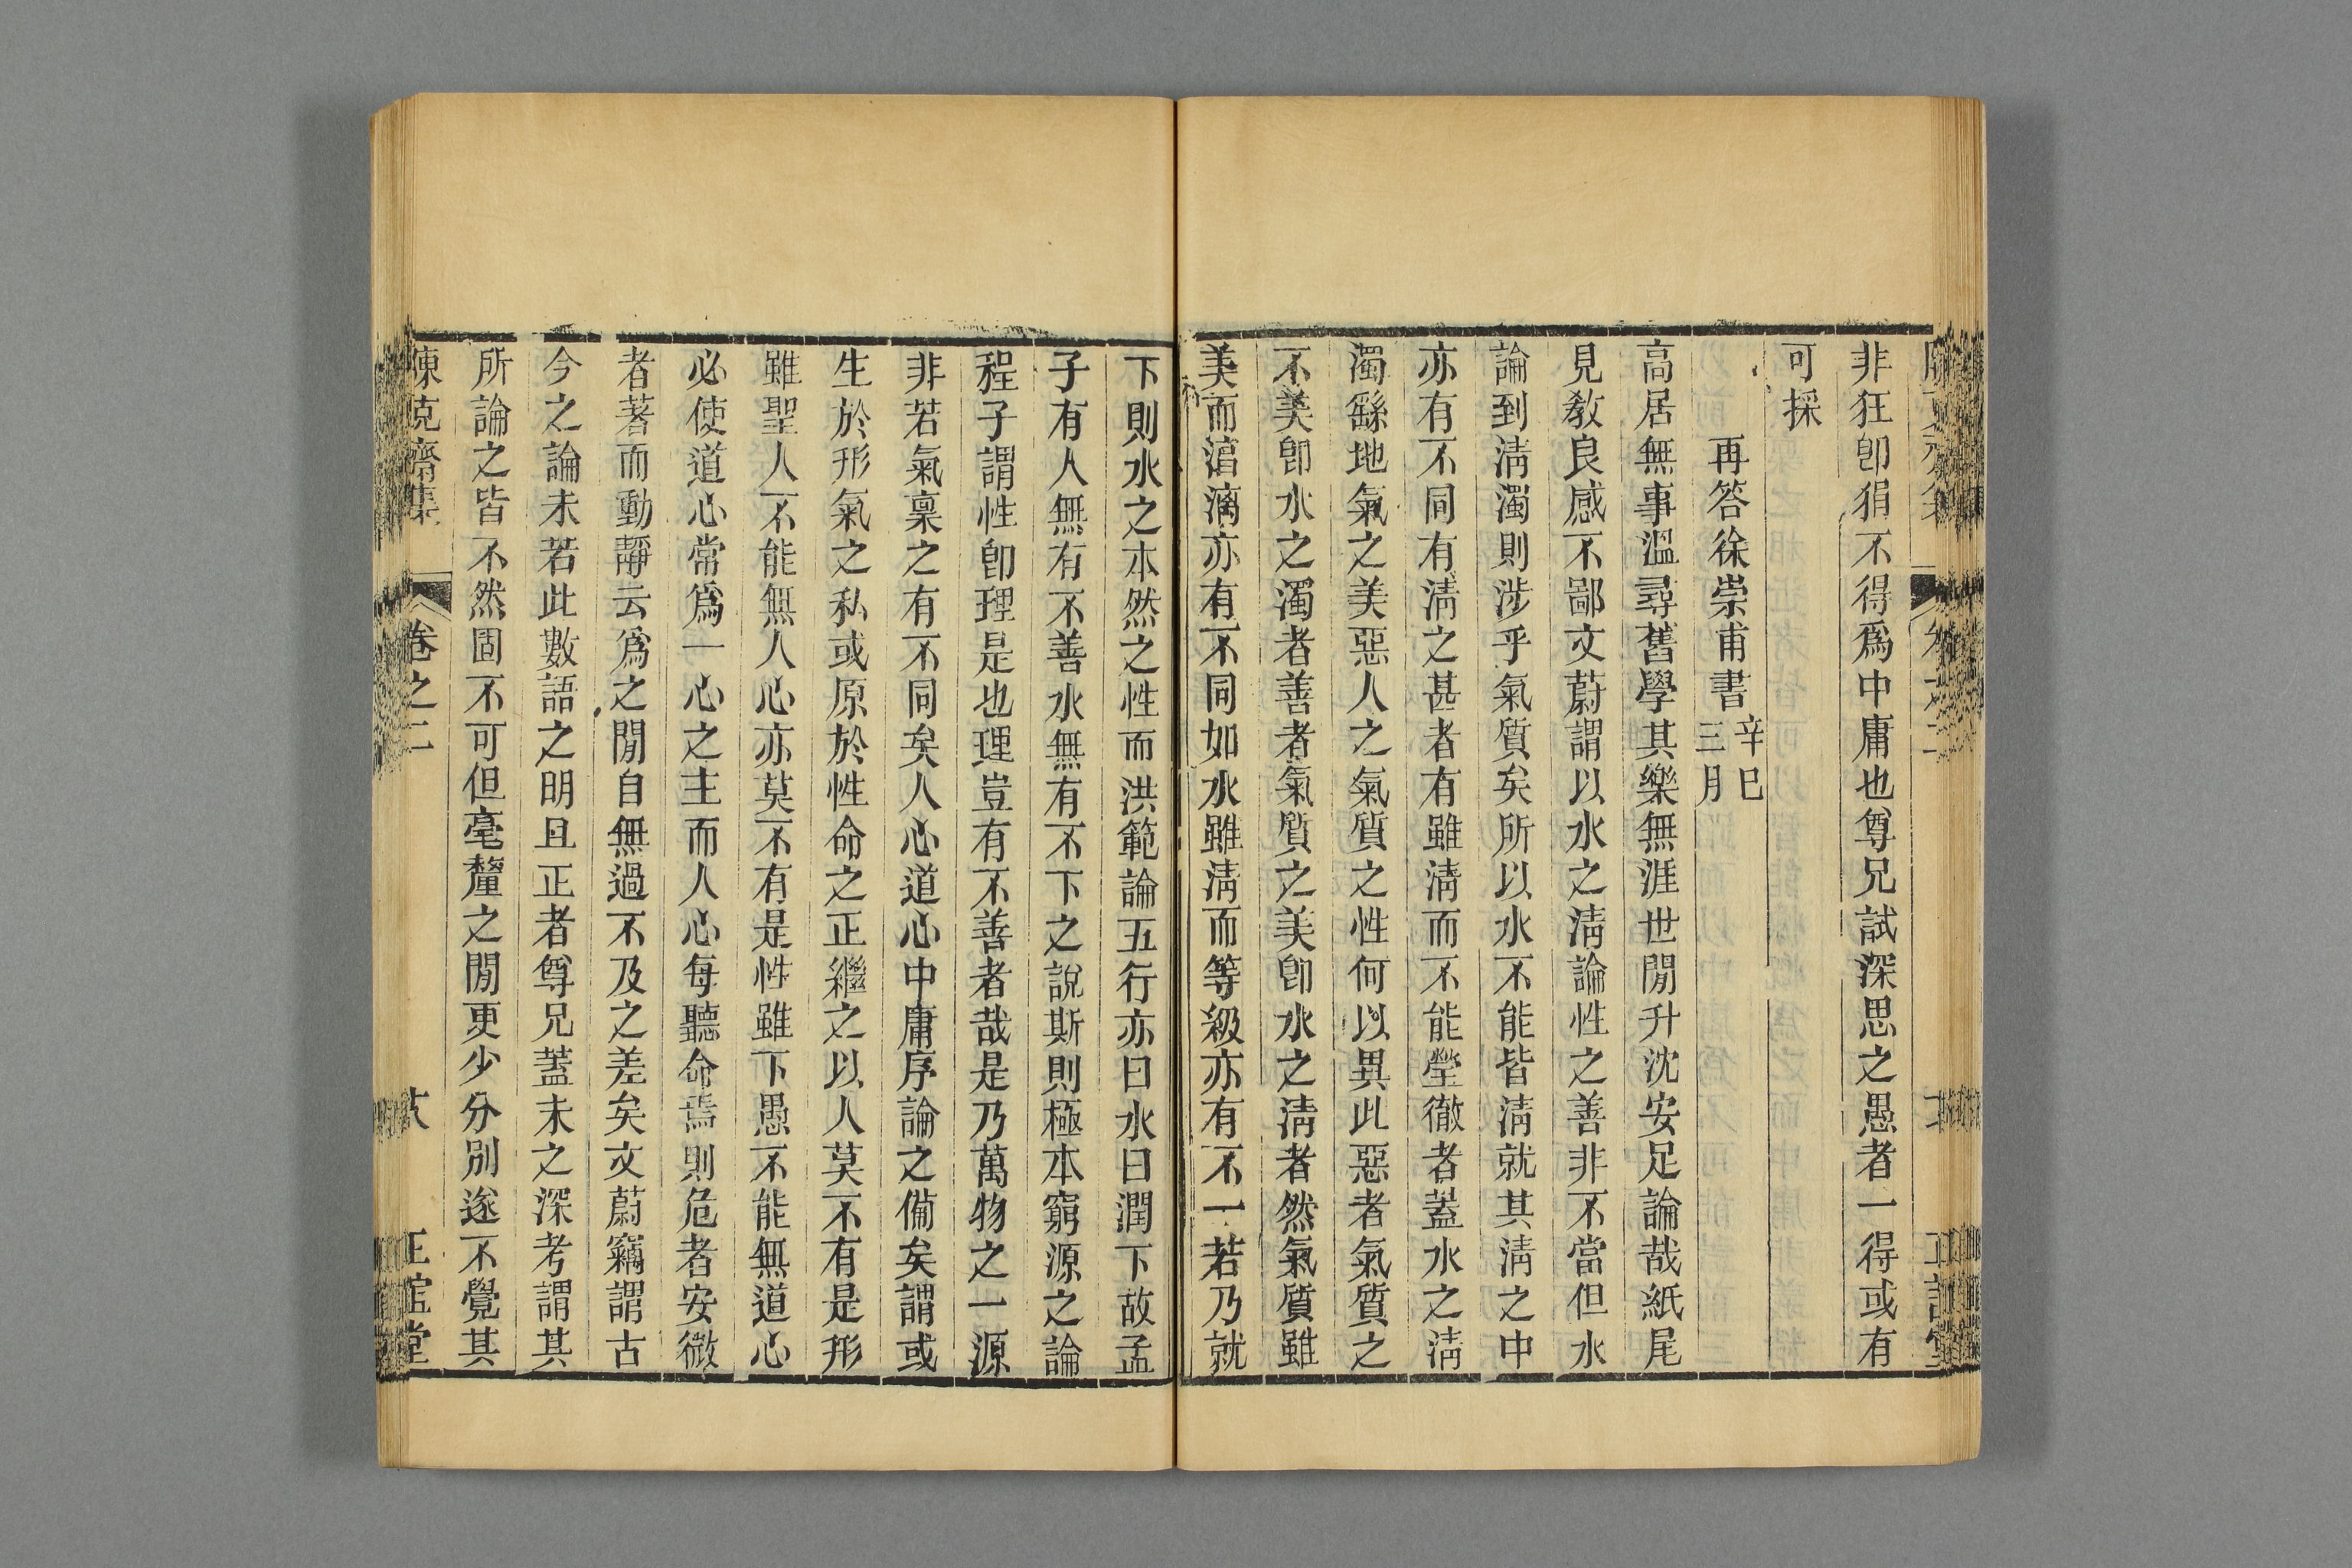 非狂卽狷不得爲中庸也尊兄試深思之愚者一得或有
可採
再答徐崇甫書辛巳三月
高居無事溫尋舊學其樂無涯世閒升沈安足論哉紙尾
見敎良感不鄙文蔚謂以水之淸論性之善非不當但水
論到淸濁則涉乎氣質矣所以水不能皆淸就其淸之中
亦有不同有淸之甚者有雖淸而不能瑩徹者蓋水之淸
濁繇地氣之美惡人之氣質之性何以異此惡者氣質之
不美卽水之濁者善者氣質之美卽水之淸者然氣質雖
美而湻漓亦有不同如水雖淸而等級亦有不一若乃就
下則水之本然之性而洪範論五行亦曰水曰潤下故孟
子有人無有不善水無有不下之說斯則極本窮源之論
程子謂性卽理是也理豈有不善者哉是乃萬物之一源
非若氣稟之有不同矣人心道心中庸序論之備矣謂或
生於形氣之私或原於性命之正繼之以人莫不有是形
雖聖人不能無人心亦莫不有是性雖下愚不能無道心
必使道心常爲一心之主而人心每聽命焉則危者安微
者著而動靜云爲之閒自無過不及之差矣文蔚竊謂古
今之論未若此數語之明且正者尊兄蓋未之深考謂其
所論之皆不然固不可但毫釐之閒更少分別遂不覺其
陳克齋集 卷之二 正誼堂